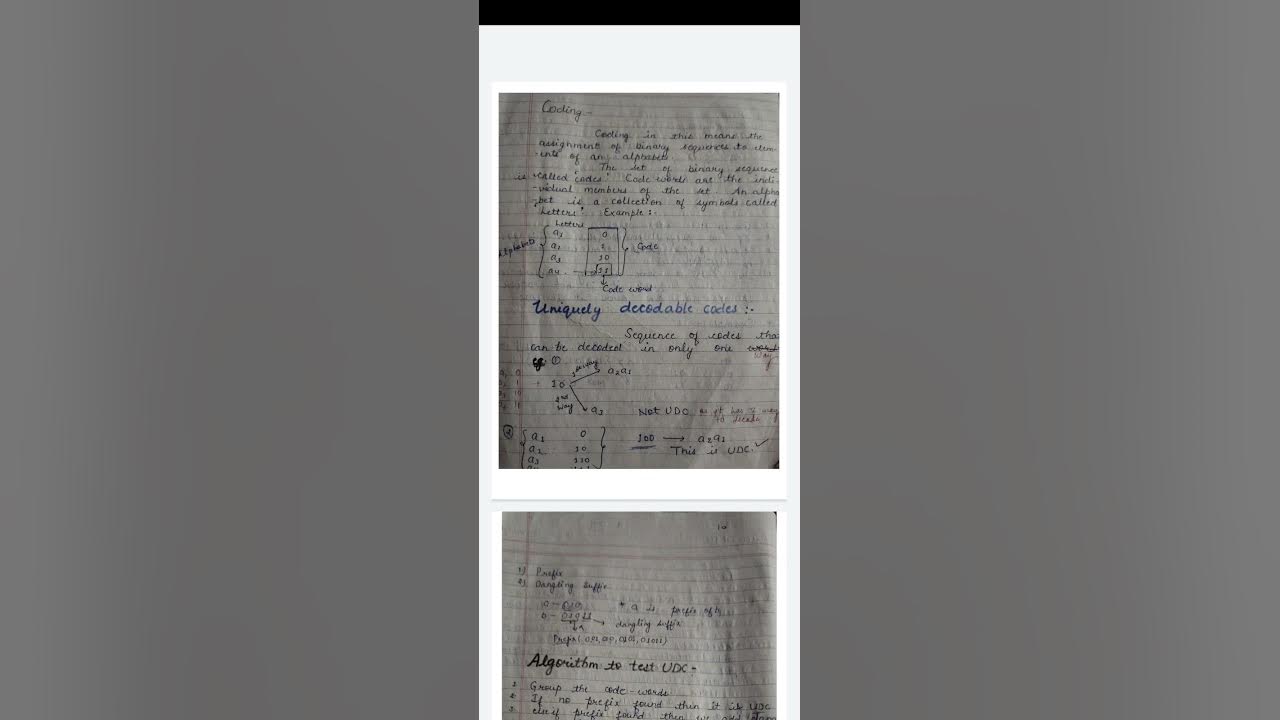 Coding -
Coding in this means the
assignment of binary sequences to elem-
-ents of an alphabet.
The set of binary sequence
is called "codes". Code words are the indi-
-vidual members of the set. An alpha
-bet is a collection of symbols called
Letters". Example :-
Letters
Alphabets
a1 0
a2 1
a3 10
a4 11
Code
Code word
Uniquely decodable codes :-
Sequence of codes tha
can be decoded in only one way
eg. ①
a1 0
a2 1
a3 10
a4 11
10
a2a1
2nd way
a3
Not UDC as it has 2 way to decode
② a1 0
a2 10
a3 110
100 → a2a1
This is UDC. ✓
10
1) Prefix
2) Dangling Suffix
a - 010
b - 01011
* a is prefix of b
→ dangling suffix
Algorithm to test UDC -
1 Group the code-words
2 If no prefix found then it is UDC
3 else if prefix found then we add